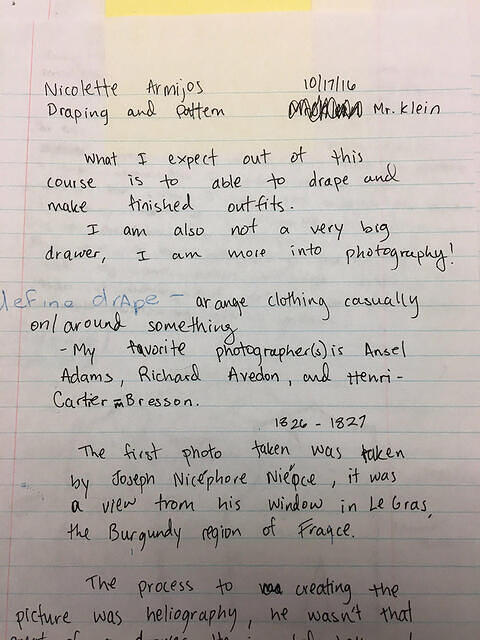 Nicolette Armijos 10/17/16
Draping and Pattern Mr. Klein
What I expect out of this
course is to able to drape and
make finished outfits.
I am also not a very big
drawer, I am more into photography!
define drApe - arange clothing casually
on/around something
- My favorite photographer(s) is Ansel
Adams, Richard Avedon, and Henri-
Cartier-Bresson.
1826 - 1827
The first photo taken was taken
by Joseph Nicéphore Niépce, it was
a view from his window in Le Gras,
the Burgundy region of France.
The process to creating the
picture was heliography, he wasn't that